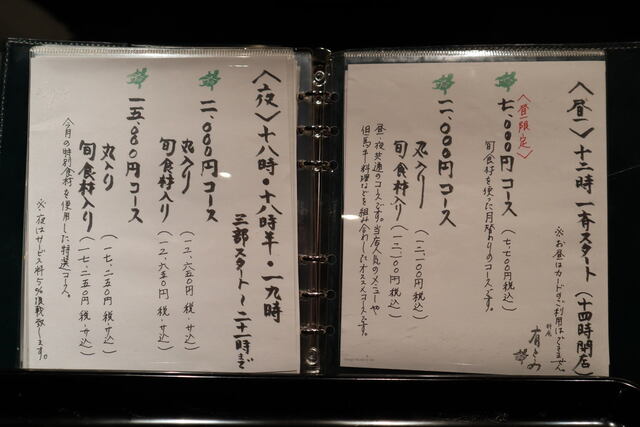 〈昼〉十二時一斉スタート(十四時閉店)
※お昼はカードのご利用はできません。
〈昼限定〉
七、000円コース(七、七00円税込)
旬食材を使った月替わりのコースです。
一一、000円コース
丸入り(一二、一00円税込)
旬食材入り(一二、一00円税込)
昼、夜共通のコースです。当店人気のメニューや
但馬牛料理などを組み合わしたオススメコースです。
〈夜〉十八時・十八時半・一九時
三部スタート〜二十一時まで
一一、000円コース
丸入り(一二、六五0円税・サ込)
旬食材入り(一二、六五0円税・サ込)
一五、000円コース
丸入り(一七、二五0円税・サ込)
旬食材入り(一七、二五0円税・サ込)
今月の特別食材を使用した特選コース。
※夜はサービス料5%頂戴致します。